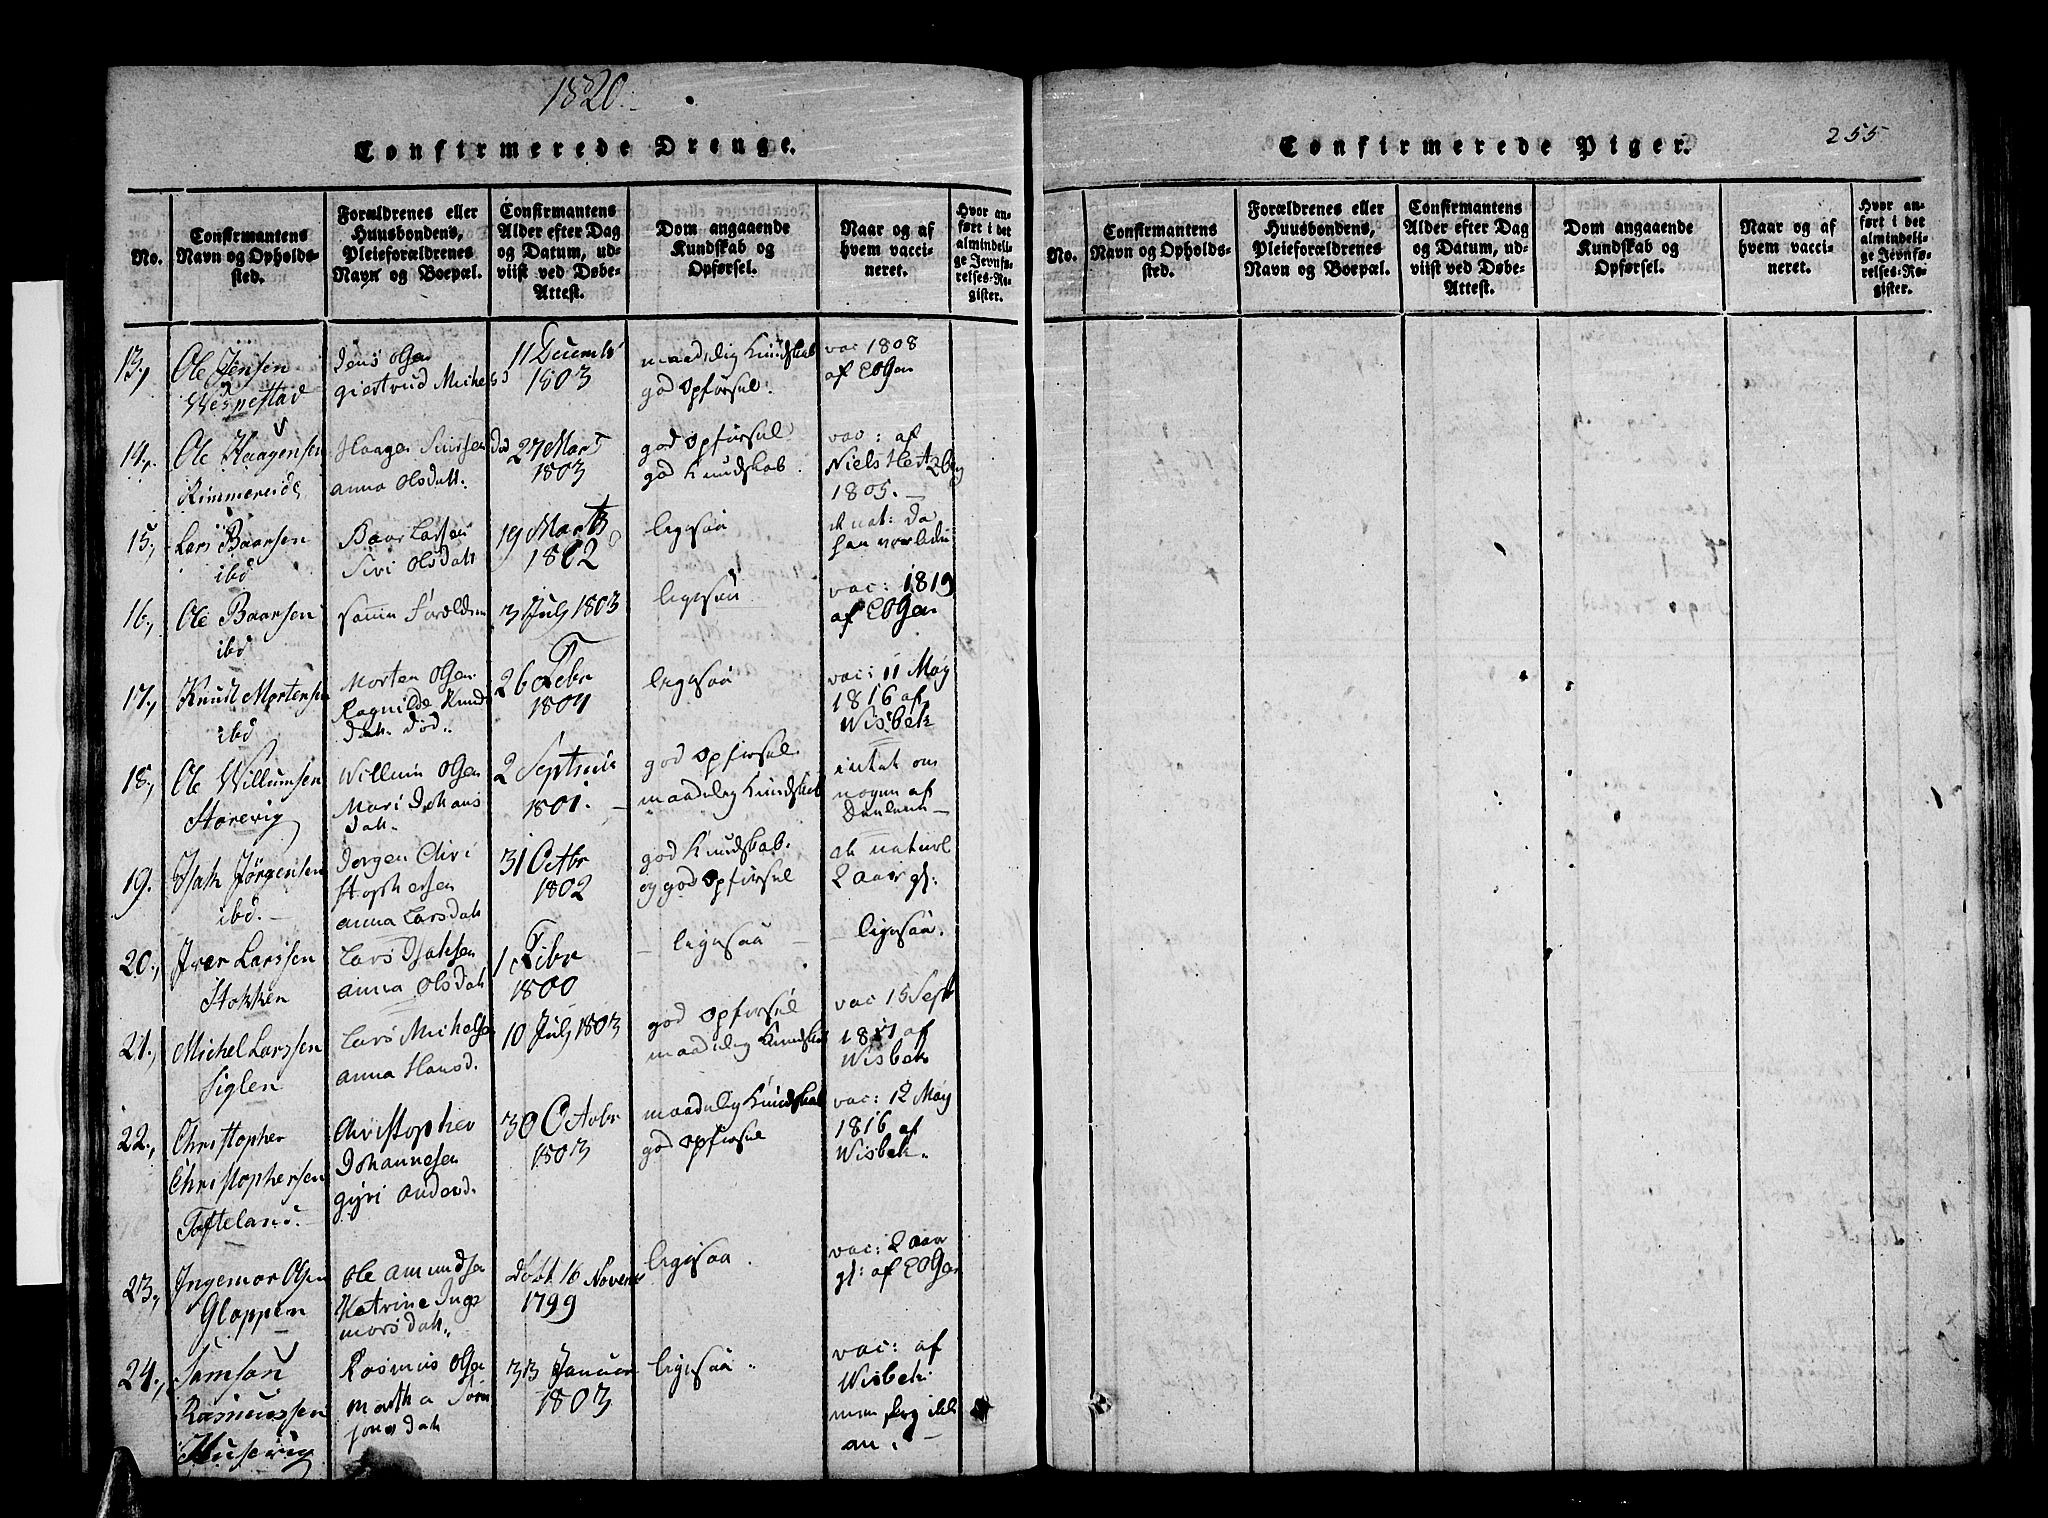 1820.
Confirmerede Drenge.
No.
Confirmantens
Navn og Opholds-
sted.
Forældrenes eller
Huusbondens,
Pleieforældrenes
Navn og Boepæl.
Confirmantens
Alder efter Dag
og Datum, ud-
viist ved Døbe-
Attest.
Dom angaaende
Kundskab og
Opførsel.
Naar og af
hvem vacci-
neret.
Hvor an-
ført i det
almindeli-
ge Jevnfø-
relses-Re-
gister.
13.,
Ole Jensen
Jens Olsen
giertrud Michels
1803
maadelig Kundskab
god Opførsel.
vac 1808
af EOlsen
14.,
Ole Haagensen
Rimmereide
Haagen
anna Olsdatt.
27 Mart
1803
god Opførsel
god Kundskab.
vac: af
Niels Hertzberg
1805.
15.,
Lars Baarsen
ibd
Baar Larsen
Siri Olsdatt
19 Marti
1802
ligesaa
nat: da
han var liden
16.,
Ole Baarsen
ibd
samme Foreldre
3 July 1803
ligesaa
vac: 1819
af EOlsen
17.,
Knud Mortensen
ibd
Morten Olsen
Ragnilde Knuds
datt. død.
26 Febr
1804
ligesaa
vac: 11 May
1816 af
Wisbek
18.,
Ole Willumsen
Storevig
Willum Olsen
Mari Johans
datt.
2
1801.
god Opførsel
maadelig Kundskab
intet om
nogen af
Deelene
19.
Isak Jörgensen
ibd.
Jørgen Chri
stophersen
anna Larsdatt
31 Octbr
1802
god Kundskab.
og god Opførsel
naturl
2 aar gl:
20.,
Iver Larssen
Stokken
Lars Isaksen
anna Olsdatt
1 Febr
1800
ligesaa
ligesaa.
21.,
Michel Larssen
Siglen
Lars Michelsen
anna Hansd.
10 July 1803
god Opførsel
maadelig Kundskab
vac 15 Sept
af
Wisbek
22.,
Christopher
Christophersen
Tofteland.
Christopher
Johannesen
gyri Andersd.
30 Octobr
1803
maadelig Kundskab
god Opførsel
vac: 12 May
1816 af
Wisbek.
23.,
Ingemor Olsen
Gloppen
Ole Amundsen
Katrine Inge
morsdatt.
døbt 16 Novemb
1799
ligesaa.
vac: 2 aar
gl: af EOlsen
24.,
Samson
Rasmussen
Husevig
Rasmus Olsen
martha
Januar
1803
ligesaa.
vac: af
Wisbek.
an.
255
Confirmerede Piger.
No.
Confirmantens
Navn og Opholds-
sted.
Forældrenes eller
Huusbondens,
Pleieforældrenes
Navn og Boepæl.
Confirmantens
Alder efter Dag
og Datum, ud-
viist ved Døbe-
Attest.
Dom angaaende
Kundskab og
Opførsel.
Naar og af
hvem vacci-
neret.
Hvor an-
ført i det
almindeli-
ge Jevnfø-
relses-Re-
gister.